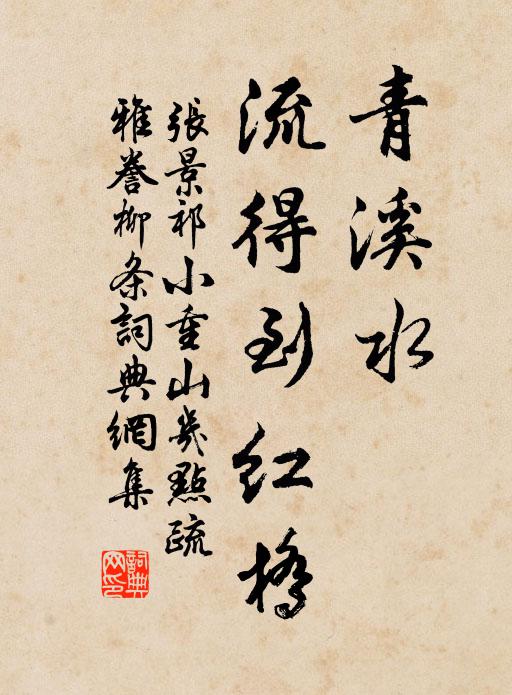 青溪水
流得到红橋
張景祁小重山幾點疏
雅誉柳条詞典網集
詞典
网印